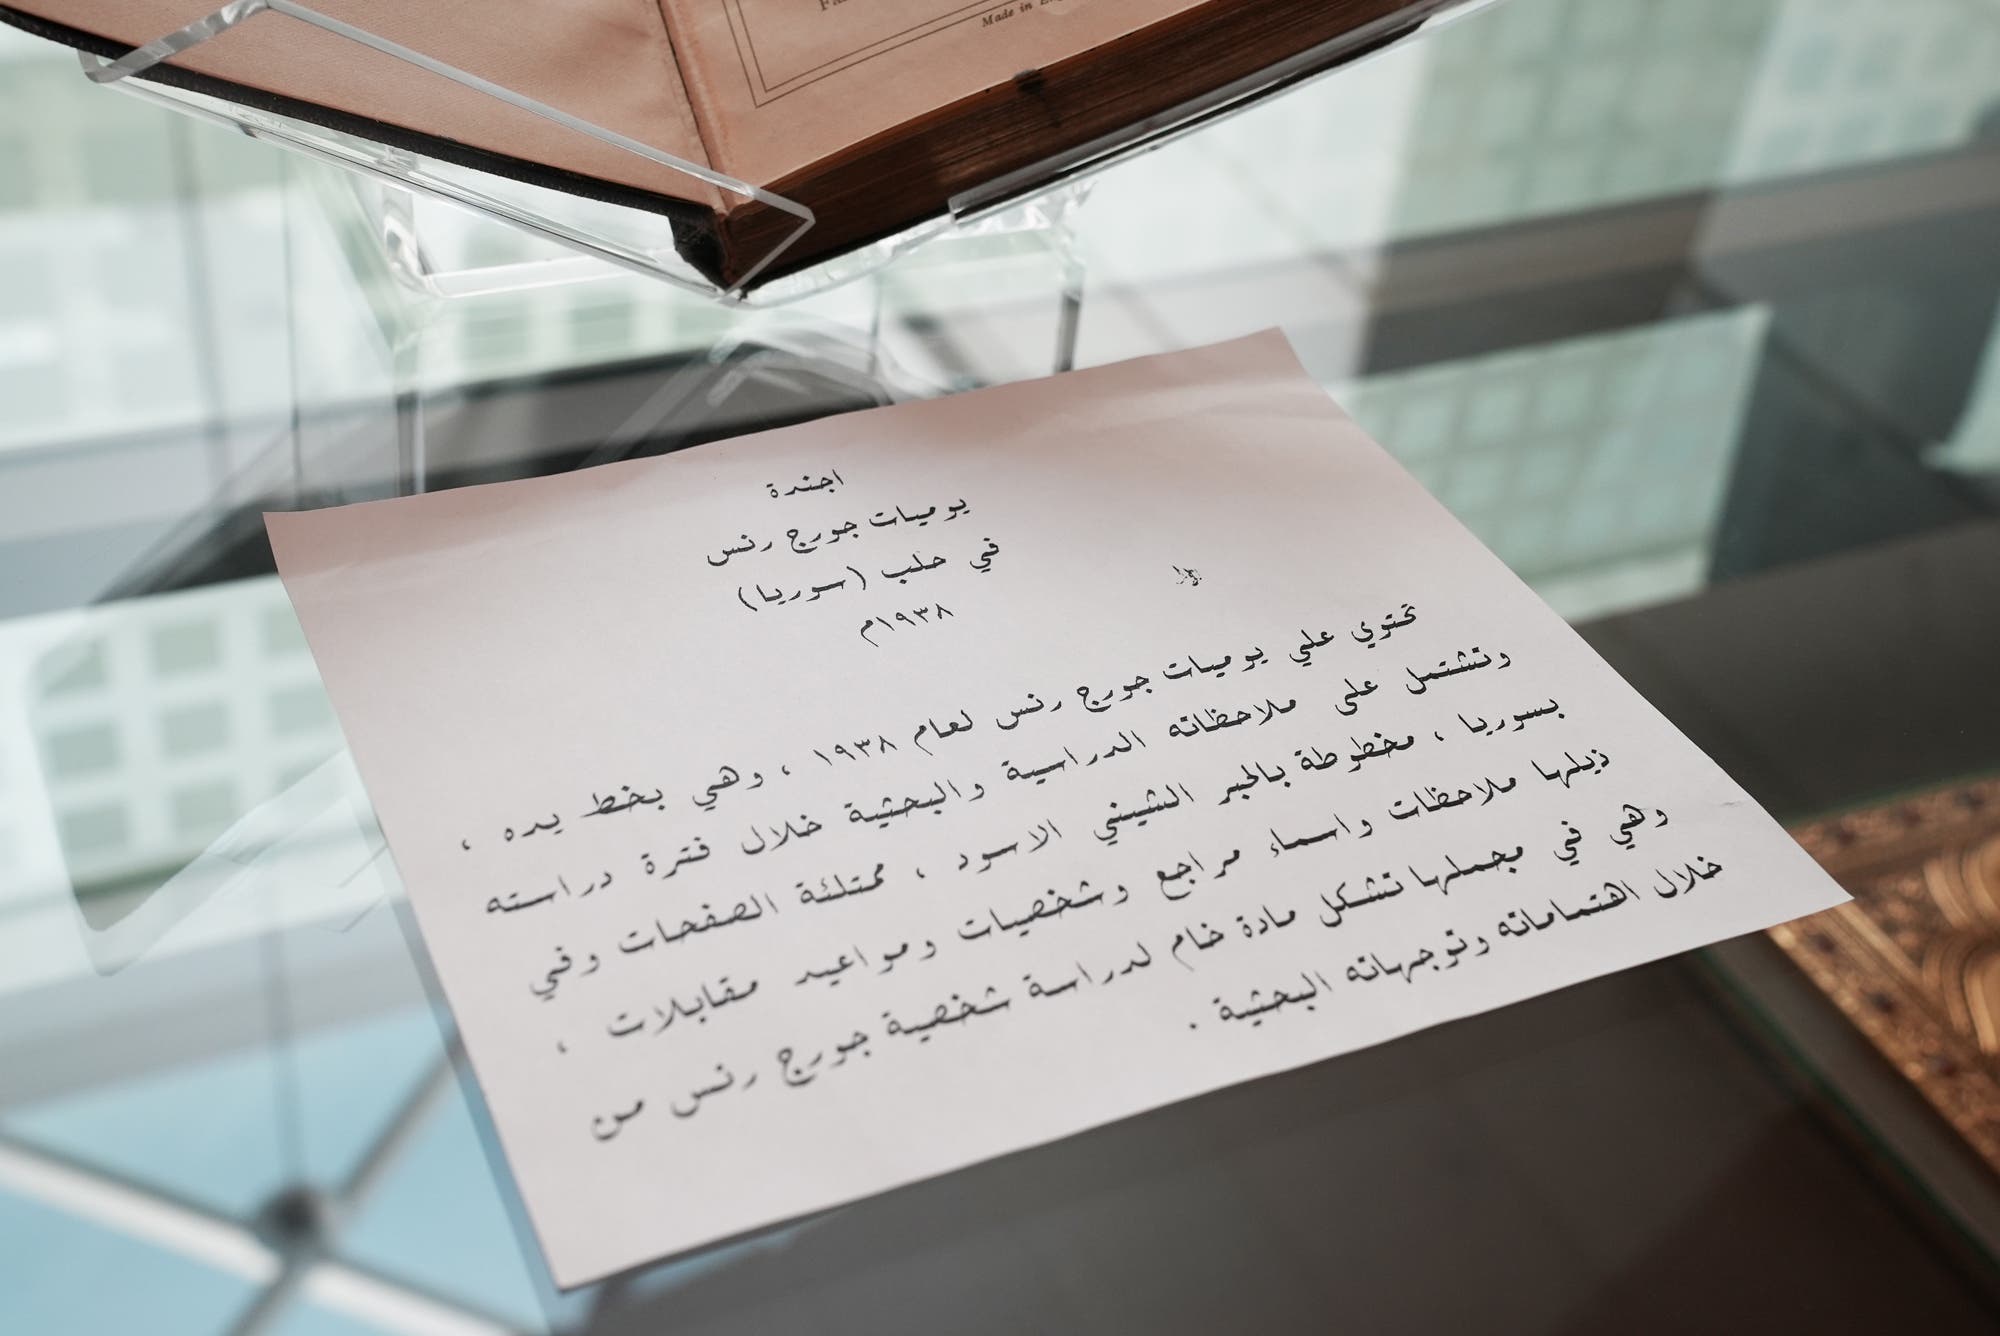 Made in
اجندة
يوميات جورج رنس
في حلب (سوريا)
١٩٣٨م
تحتوي علي يوميات جورج رنس لعام ١٩٣٨ ، وهي بخط يده ،
وتشتمل على ملاحظاته الدراسية والبحثية خلال فترة دراسته
بسوريا ، مخطوطة بالحبر الشيني الاسود ، ممتلئة الصفحات وفي
ذيلها ملاحظات واسماء مراجع وشخصيات ومواعيد مقابلات ،
وهي في مجملها تشكل مادة خام لدراسة شخصية جورج رنس من
خلال اهتماماته وتوجهاته البحثية .